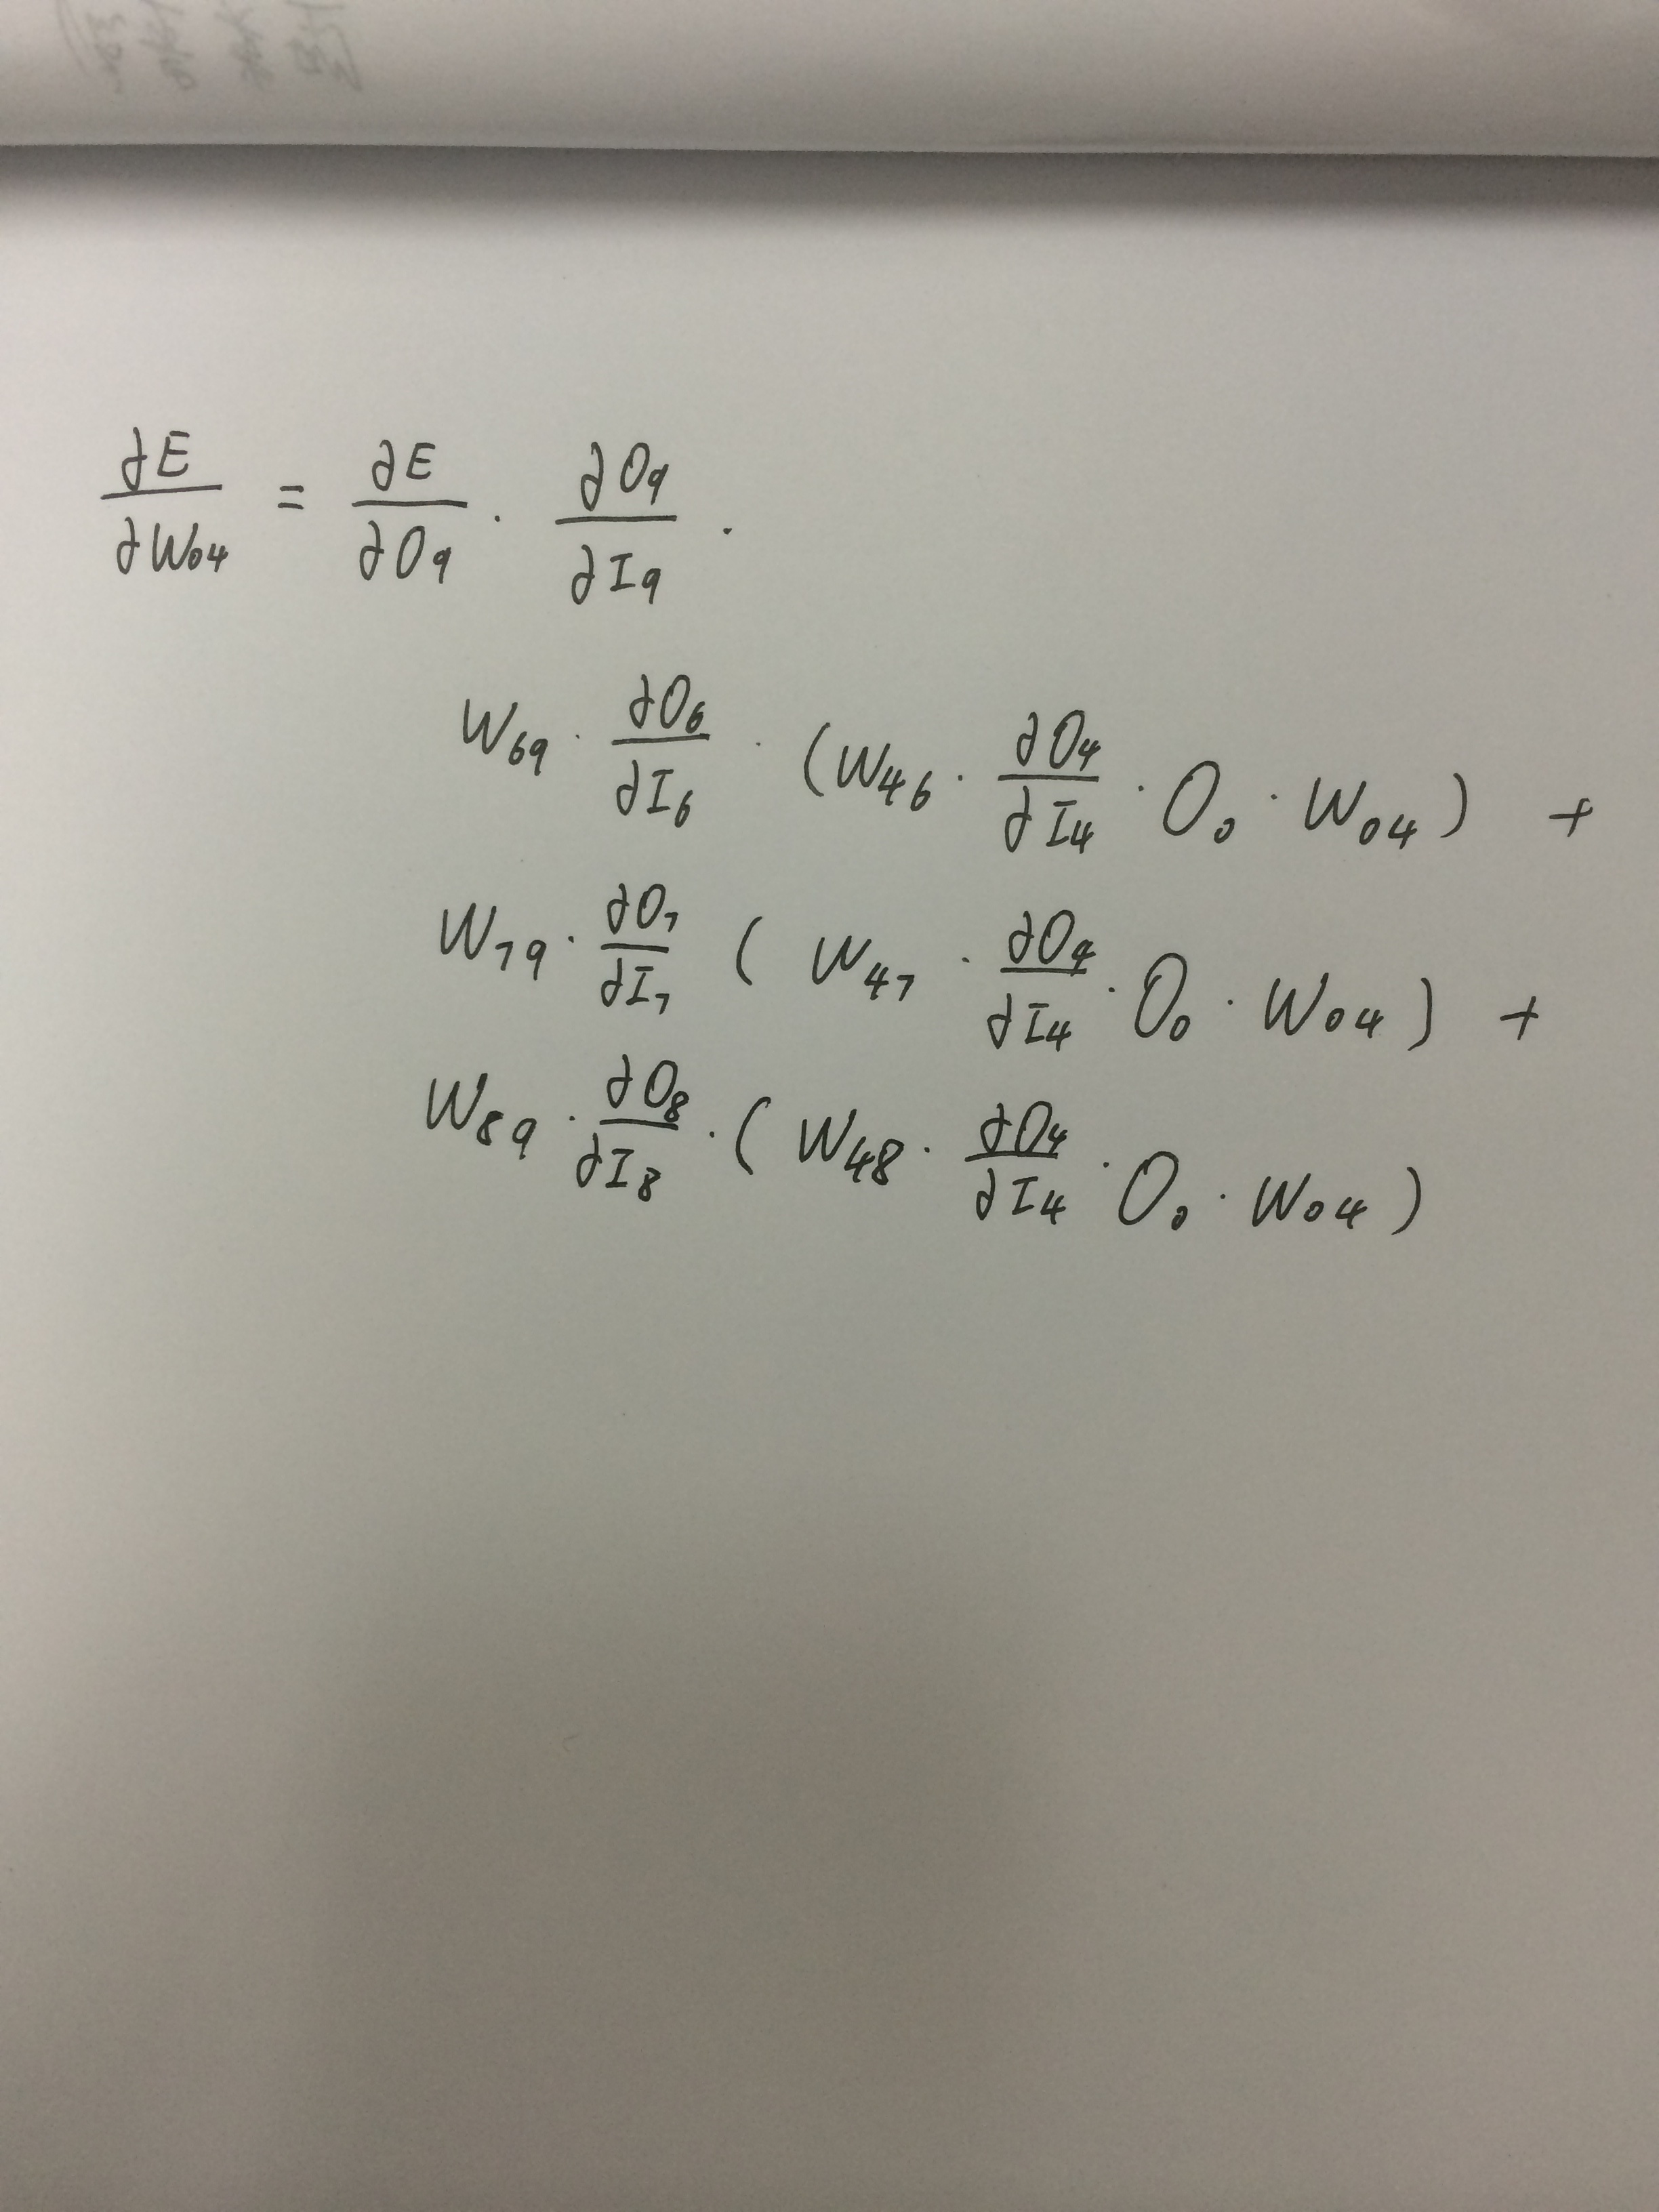 ∂E/∂W₀₄ = ∂E/∂O₉ · ∂O₉/∂I₉ ·
W₆₉ · ∂O₆/∂I₆ · (W₄₆ · ∂O₄/∂I₄ · O₀ · W₀₄) +
W₇₉ · ∂O₇/∂I₇ ( W₄₇ · ∂O₄/∂I₄ · O₀ · W₀₄) +
W₈₉ · ∂O₈/∂I₈ · ( W₄₈ · ∂O₄/∂I₄ · O₀ · W₀₄)